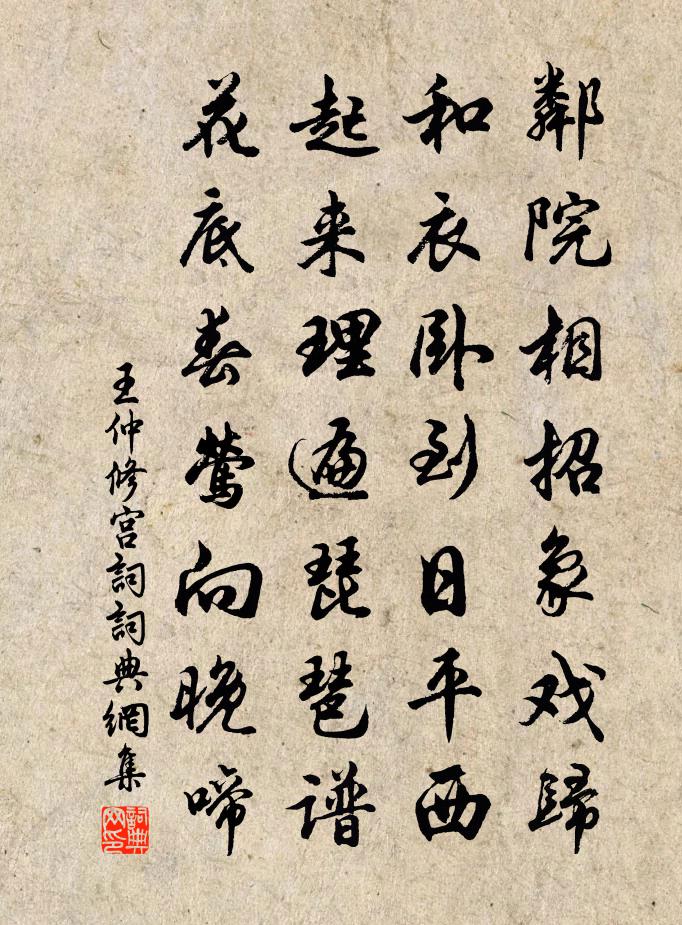 鄰院相招象戏歸
和衣卧到日平西
起来理遍琵琶谱
花底春莺向晚啼
王仲修宫詞詞典網集
詞典
网印